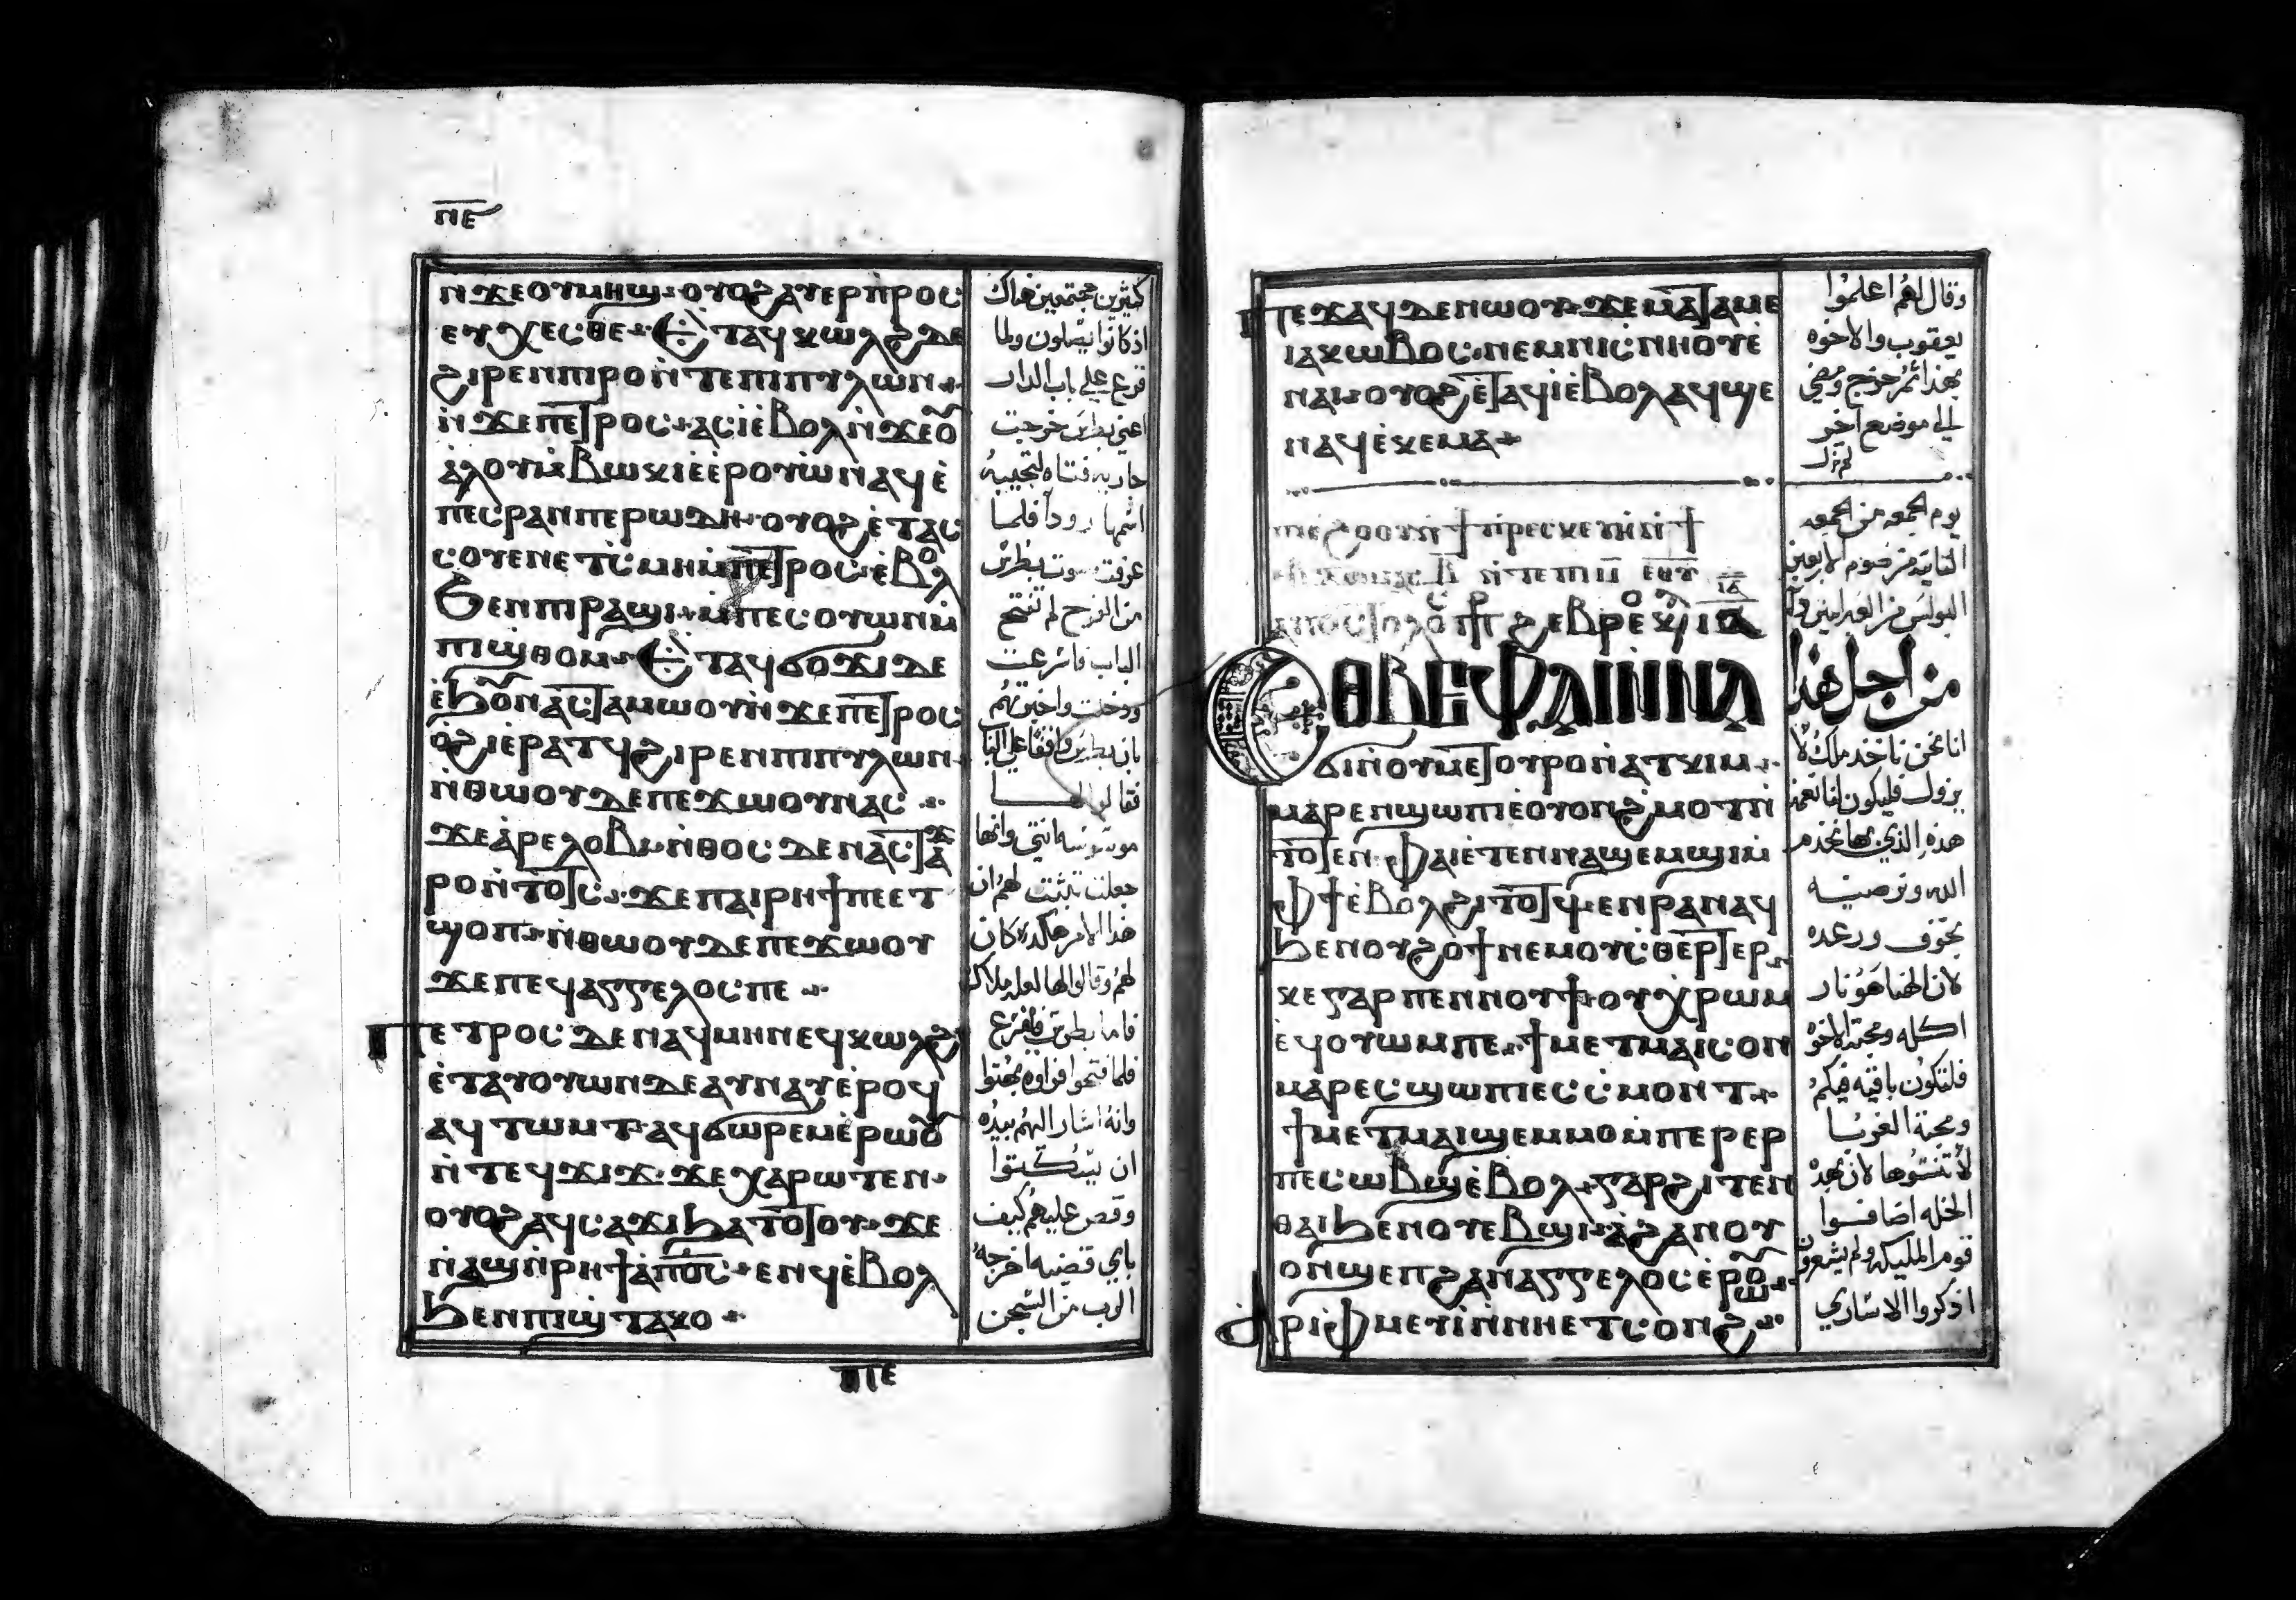 ⲡⲉ
ⲛ̀ϫⲉⲟⲩⲙⲏϣ ⲟⲩⲟϩ ⲁⲩⲉⲣⲡⲣⲟⲥ
ⲉⲩⲭⲉⲥⲑⲉ ⲉⲧⲁϥⲕⲱⲗϩ ⲇⲉ
ϩⲓⲣⲉⲛⲡⲓⲣⲟ ⲛ̀ⲧⲉⲡⲓⲡⲩⲗⲱⲛ
ⲛ̀ϫⲉⲡⲉⲧⲣⲟⲥ ⲁⲥⲓ̀ⲉ̀ⲃⲟⲗ ⲛ̀ϫⲉⲟⲩ
ⲁ̀ⲗⲟⲩ ⲙ̀ⲃⲱⲕⲓ ⲉ̀ⲉ̀ⲣⲟⲩⲱ̀ ⲛⲁϥ ⲉ̀
ⲡⲉⲥⲣⲁⲛ ⲡⲉ ⲣⲱⲇⲏ ⲟⲩⲟϩ ⲉ̀ⲧⲁⲥ
ⲥⲟⲩⲉⲛ ⲉⲧⲥⲙⲏ ⲙ̀ⲡⲉⲧⲣⲟⲥ ⲉ̀ⲃⲟⲗ
ϧⲉⲛⲡⲓⲣⲁϣⲓ ⲙ̀ⲡⲉⲥⲟⲩⲱⲛ ⲙ̀
ⲡⲓϣⲑⲟⲙ ⲉⲧⲁⲥϭⲟϫⲓ ⲇⲉ
ⲉ̀ϧⲟⲩⲛ ⲁⲥⲧⲁⲙⲱⲟⲩ ⲛ̀ϫⲉⲡⲉⲧⲣⲟⲥ
ⲟ̀ϩⲓ ⲉ̀ⲣⲁⲧϥ ϩⲓⲣⲉⲛⲡⲓⲡⲩⲗⲱⲛ
ⲛ̀ⲑⲱⲟⲩ ⲇⲉ ⲡⲉϫⲱⲟⲩ ⲛⲁⲥ
ϫⲉ ⲁ̀ⲣⲉⲗⲟⲃⲓ ⲛ̀ⲑⲟⲥ ⲇⲉ ⲛⲁⲥⲧⲁϫ
ⲣⲟ ⲛ̀ⲧⲟⲧⲥ ϫⲉ ⲡⲁⲓⲣⲏϯ ⲡⲉⲉⲧ
ϣⲟⲡ ⲛ̀ⲑⲱⲟⲩ ⲇⲉ ⲡⲉϫⲱⲟⲩ
ϫⲉ ⲡⲉϥⲁⲅⲅⲉⲗⲟⲥ ⲡⲉ
ⲡⲉⲧⲣⲟⲥ ⲇⲉ ⲛⲁϥⲙⲏⲛ ⲉϥⲕⲱⲗϩ
ⲉ̀ⲧⲁⲩⲟⲩⲱⲛ ⲇⲉ ⲁⲩⲛⲁⲩ ⲉ̀ⲣⲟϥ
ⲁⲩⲧⲱⲙⲧ ⲁϥϭⲱⲣⲉⲙ ⲉ̀ⲣⲱⲟⲩ
ⲛ̀ⲧⲉϥϫⲓϫ ϫⲉ ⲭⲁⲣⲱⲧⲉⲛ
ⲟⲩⲟϩ ⲁϥⲥⲁϫⲓ ϧⲁⲧⲟⲧⲟⲩ ϫⲉ
ⲛ̀ⲁϣ ⲛ̀ⲣⲏϯ ⲁ̀ⲡϭⲟⲥ ⲉⲛϥ ⲉ̀ⲃⲟⲗ
ϧⲉⲛⲡⲓϣⲧⲁⲕⲟ
ⲡⲉ
كثيرين مجتمعين هناك
اذ كانوا يصلون ولما
قرع علي باب الدار
اعني بطرس خرجت
جاريه فتاه لتجيبه
اسمها رودا فلما
عرفت صوت بطرس
من الفرح لم تفتح
الباب فاسرعت
ودخلت واخبرتهم
بان بطرس واقفا علي الباب
فقالوا لها
موسوسه انتي وانها
جعلت تثبت لهم ان
هذا الامر هكذا كان
لهم وقالوا لها لعله ملاكه
فاما بطرس فليقرع
فلما فتحوا فراوه بهتوا
وانه اشار اليهم بيده
ان يسكتوا
وقص عليهم كيف
باي قضيه اخرجه
الرب من السجن
ⲡⲉϫⲁϥ ⲇⲉ ⲛⲱⲟⲩ ϫⲉ ⲙⲁⲧⲁⲙⲉ
ⲓⲁⲕⲱⲃⲟⲥ ⲛⲉⲙⲛⲓⲥⲛⲏⲟⲩ ⲉ̀
ⲛⲁⲓ ⲟⲩⲟϩ ⲉ̀ⲧⲁϥⲓ̀ ⲉ̀ⲃⲟⲗ ⲁϥϣⲉ
ⲛⲁϥ ⲉ̀ⲕⲉⲙⲁ
ⲡⲓⲉ̀ϩⲟⲟⲩ ⲛ̀ϯⲡⲣⲉⲥⲕⲉⲩⲏ ⲛ̀ϯ
ⲁⲡⲟⲥⲧⲟⲗⲟⲥ ⲡⲣⲟⲥ ϩⲉⲃⲣⲉⲟⲩⲥ
ⲉⲑⲃⲉⲫⲁⲓ ⲛ̀ⲛⲁ
ϭⲓ ⲛ̀ⲟⲩⲙⲉⲧⲟⲩⲣⲟ ⲛ̀ⲁⲧⲕⲓⲙ
ⲙⲁⲣⲉⲛϣⲱⲡⲓ ⲉ̀ⲟⲩⲟⲛ ϩⲙⲟⲧ ⲛ̀
ⲧⲟⲧⲉⲛ ⲫⲁⲓ ⲉ̀ⲧⲉⲛⲛⲁϣⲉⲙϣⲓ ⲙ̀
ⲫϯ ⲉ̀ⲃⲟⲗ ϩⲓⲧⲟⲧϥ ⲉⲛⲣⲁⲛⲁϥ
ϧⲉⲛⲟⲩϩⲟϯ ⲛⲉⲙⲟⲩⲥⲑⲉⲣⲧⲉⲣ
ⲕⲉⲅⲁⲣ ⲡⲉⲛⲛⲟⲩϯ ⲟⲩⲭⲣⲱⲙ
ⲉϥⲟⲩⲱⲙ ⲡⲉ ϯⲙⲉⲧⲙⲁⲓⲥⲟⲛ
ⲙⲁⲣⲉⲥϣⲱⲡⲓ ⲉⲥⲥⲙⲟⲛⲧ
ϯⲙⲉⲧⲙⲁⲓϣⲉⲙⲙⲟ ⲙ̀ⲡⲉⲣⲉⲣ
ⲡⲉⲥⲱⲃϣ ⲉ̀ⲃⲟⲗ ⲅⲁⲣ ϩⲓⲧⲉⲛ
ⲑⲁⲓ ϧⲉⲛⲟⲩⲉⲃϣⲓ ⲁ̀ϩⲁⲛⲟⲩ
ⲟⲛ ϣⲉⲡϩⲁⲛⲁⲅⲅⲉⲗⲟⲥ ⲉ̀ⲣⲱⲟⲩ
ⲁⲣⲓⲫⲙⲉⲩⲓ̀ ⲛ̀ⲛⲏⲉⲧⲥⲟⲛϩ
وقال لهم اعلموا
يعقوب والاخوه
بهذا ثم خرج ومضي
الي موضع اخر
لم تزل
يوم الجمعه من الجمعه
الثانيه من صوم الاربعين
البولس من العبرانيين
من اجل هذا
انا نحن ناخذ ملك لا
يزول فليكون لنا نعمه
هذه الذي بها نخدم
الله ونرضيه
بخوف ورعده
لان الهنا هو نار
اكله ومحبة الاخوه
فلتكون باقيه فيكم
ومحبة الغربا
لا تنسوها لان بهذه
الخله اضافوا
قوم الملايكه ولم يشعرون
اذكروا الاساري